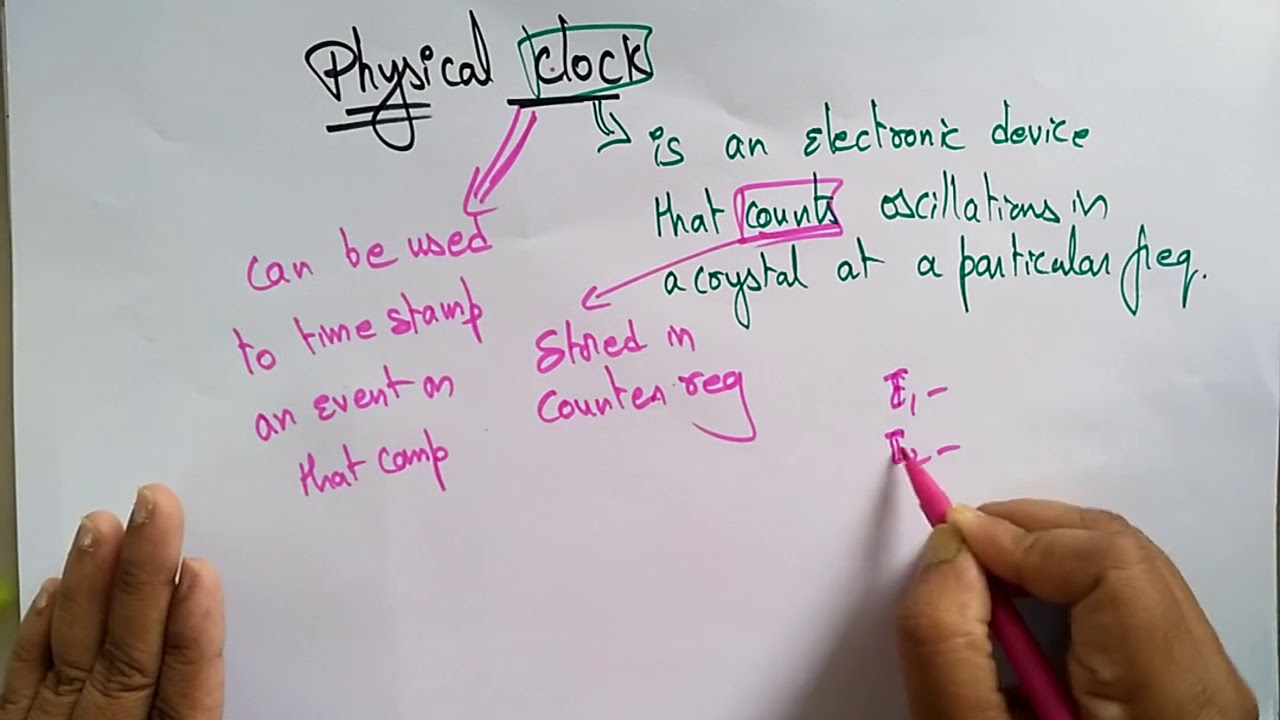 Physical clock
is an electronic device
that counts oscillations in
a crystal at a particular freq.
can be used
to time stamp
an event on
that comp
Stored in
Counter reg
E1 -
E2 -